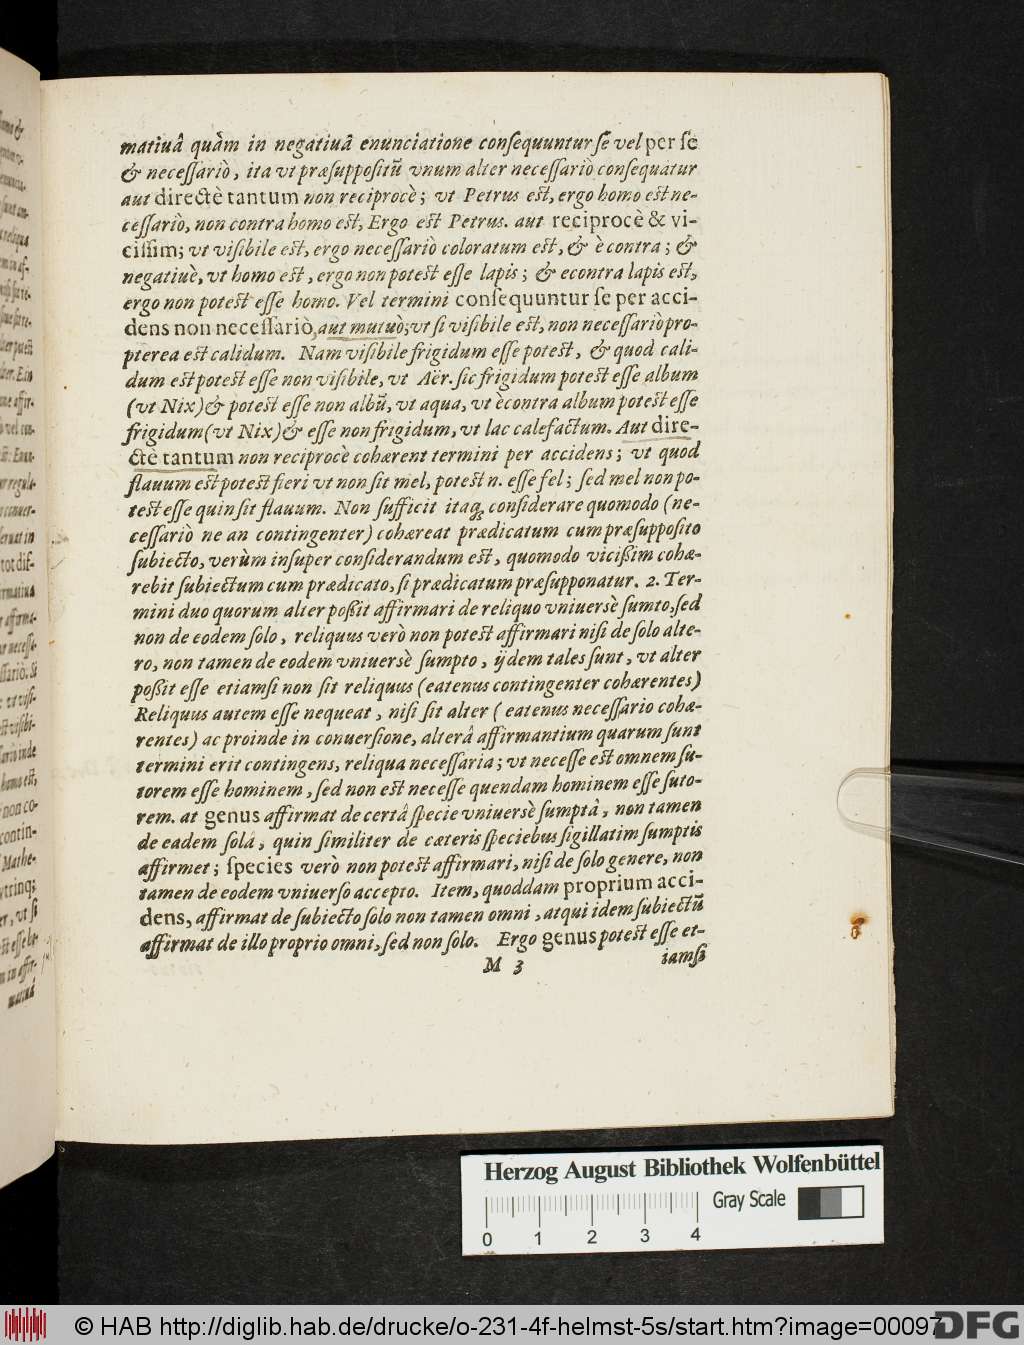 matiuâ quàm in negatiuâ enunciatione consequuntur se vel per se
& necessariò, ita vt præsuppositũ vnum alter necessariò consequatur
aut directè tantum non reciprocè; vt Petrus est, ergo homo est ne-
cessariò, non contra homo est, Ergo est Petrus. aut reciprocè & vi-
cissim; vt visibile est, ergo necessariò coloratum est, & è contra; &
negatiuè, vt homo est, ergo non potest esse lapis; & econtra lapis est,
ergo non potest esse homo. Vel termini consequuntur se per acci-
dens non necessariò, aut mutuò; vt si visibile est, non necessariò pro-
pterea est calidum. Nam visibile frigidum esse potest, & quod cali-
dum est potest esse non visibile, vt Aër. sic frigidum potest esse album
(vt Nix) & potest esse non albũ, vt aqua, vt ècontra album potest esse
frigidum (vt Nix) & esse non frigidum, vt lac calefactum. Aut dire-
ctè tantum non reciprocè cohærent termini per accidens; vt quod
flauum est potest fieri vt non sit mel, potest n. esse fel; sed mel non po-
test esse quin sit flauum. Non sufficit itaq; considerare quomodo (ne-
cessariò ne an contingenter) cohæreat prædicatum cum præsupposito
subiecto, verùm insuper considerandum est, quomodo vicißim cohæ-
rebit subiectum cum prædicato, si prædicatum præsupponatur. 2. Ter-
mini duo quorum alter poßit affirmari de reliquo vniuersè sumto, sed
non de eodem solo, reliquus verò non potest affirmari nisi de solo alte-
ro, non tamen de eodem vniuersè sumpto, ijdem tales sunt, vt alter
poßit esse etiamsi non sit reliquus (eatenus contingenter cohærentes)
Reliquus autem esse nequeat, nisi sit alter (eatenus necessario cohæ-
rentes) ac proinde in conuersione, alterâ affirmantium quarum sunt
termini erit contingens, reliqua necessaria; vt necesse est omnem su-
torem esse hominem, sed non est necesse quendam hominem esse suto-
rem. at genus affirmat de certâ specie vniuersè sumptâ, non tamen
de eadem solâ, quin similiter de cæteris speciebus sigillatim sumptis
affirmet; species verò non potest affirmari, nisi de solo genere, non
tamen de eodem vniuerso accepto. Item, quoddam proprium acci-
dens, affirmat de subiecto solo non tamen omni, atqui idem subiectũ
affirmat de illo proprio omni, sed non solo. Ergo genus potest esse et-
M 3 iamsi
Herzog August Bibliothek Wolfenbüttel
Gray Scale
0 1 2 3 4
© HAB http://diglib.hab.de/drucke/o-231-4f-helmst-5s/start.htm?image=00097
DFG